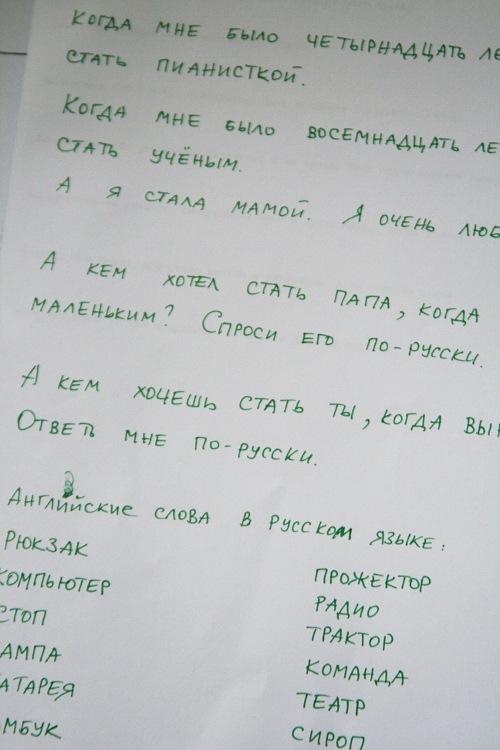 КОГДА МНЕ БЫЛО ЧЕТЫРНАДЦАТЬ ЛЕ
СТАТЬ ПИАНИСТКОЙ.
КОГДА МНЕ БЫЛО ВОСЕМНАДЦАТЬ ЛЕ
СТАТЬ УЧЁНЫМ.
А Я СТАЛА МАМОЙ. Я ОЧЕНЬ ЛЮБ
А КЕМ ХОТЕЛ СТАТЬ ПАПА, КОГДА
МАЛЕНЬКИМ? СПРОСИ ЕГО ПО-РУССКИ.
А КЕМ ХОЧЕШЬ СТАТЬ ТЫ, КОГДА ВЫ
ОТВЕТЬ МНЕ ПО-РУССКИ.
АНГЛИЙСКИЕ СЛОВА В РУССКОМ ЯЗЫКЕ:
РЮКЗАК
ПРОЖЕКТОР
КОМПЬЮТЕР
РАДИО
СТОП
ТРАКТОР
АМПА
КОМАНДА
АТАРЕЯ
ТЕАТР
МБУК
СИРОП